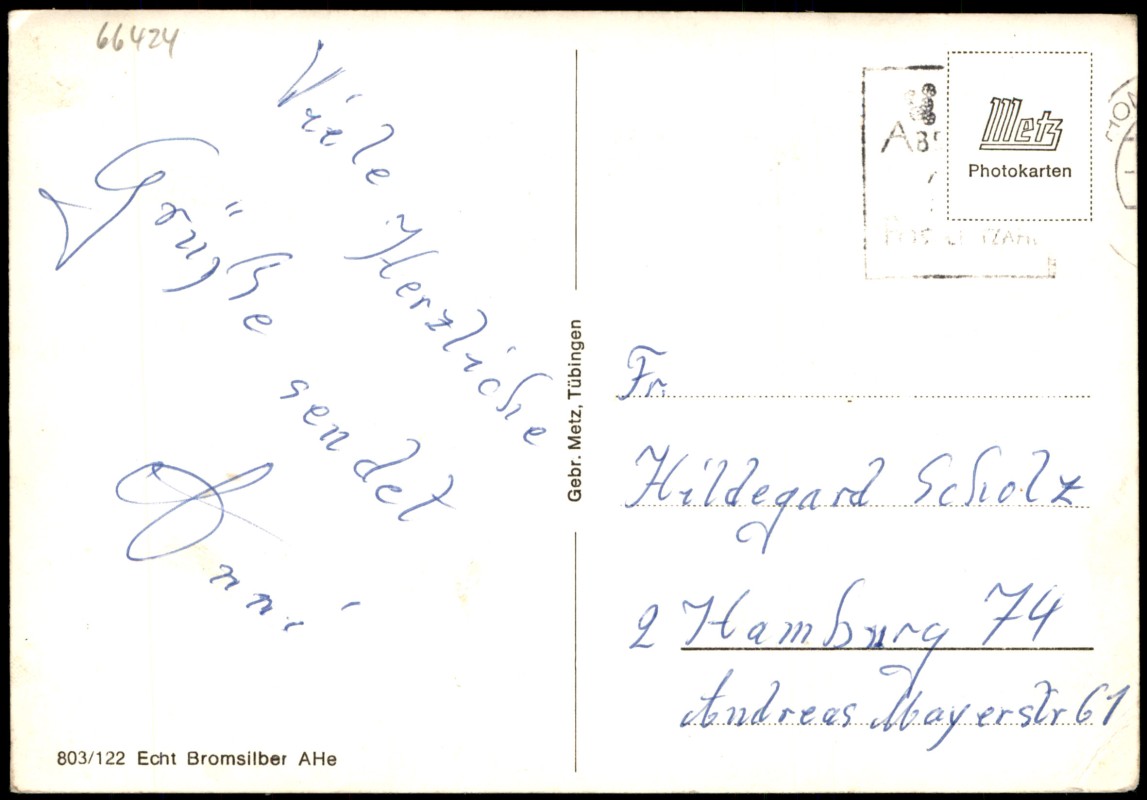 66424
Viele Herzliche
Grüße sendet
Anni
Gebr. Metz, Tübingen
Metz
Photokarten
Fr.
Hildegard Scholz
2 Hamburg 74
Andreas Mayerstr 61
803/122 Echt Bromsilber AHe